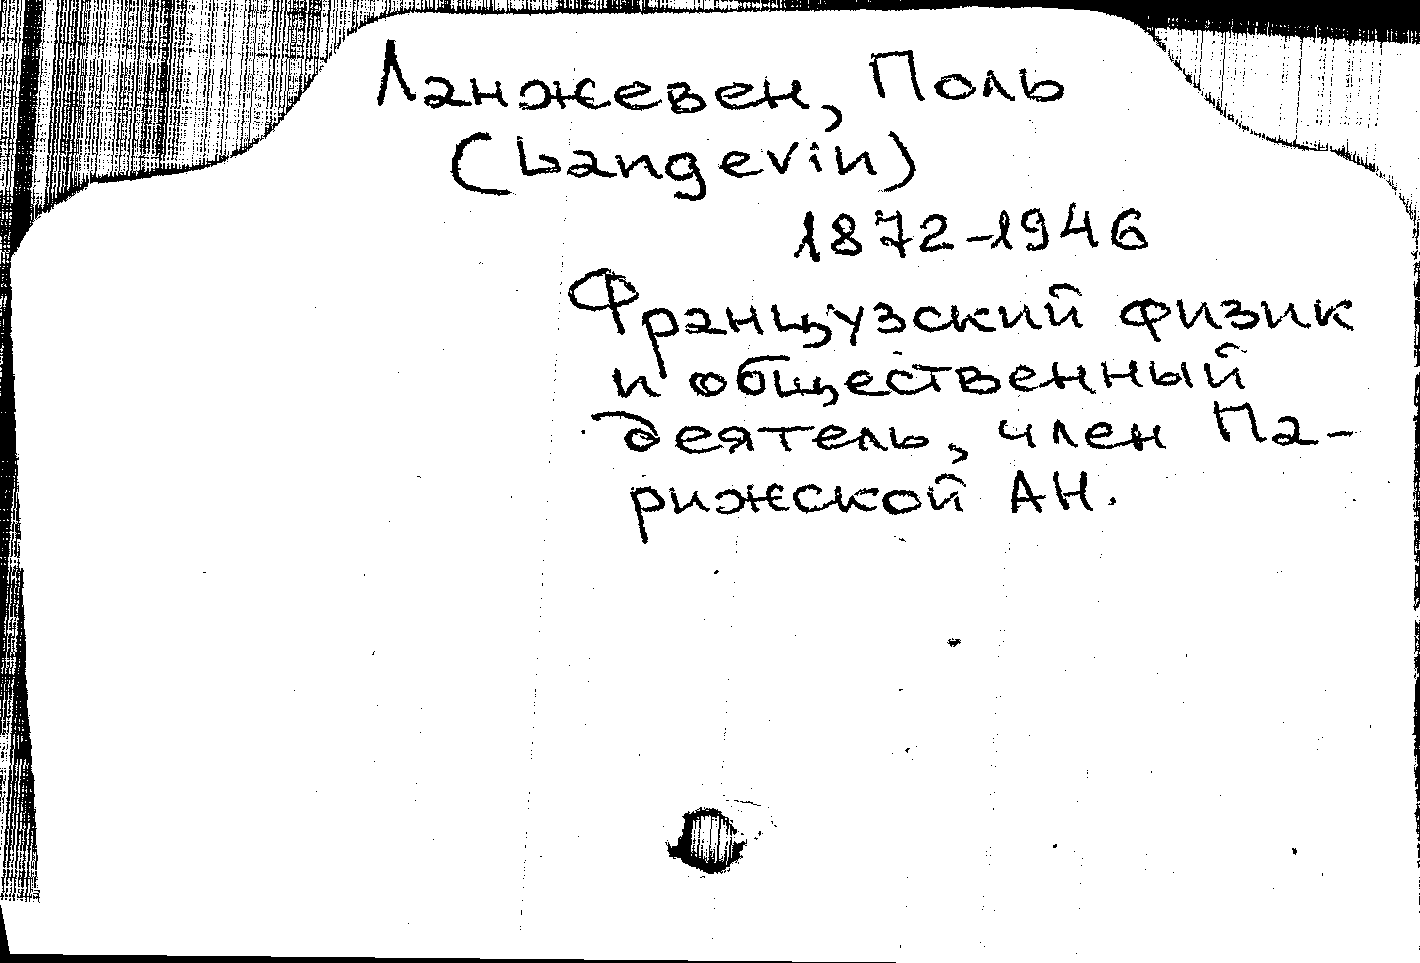 Ланжевен, Поль
(Langevin)
1872-1946
Французский физик
и общественный
деятель, член Па-
рижской АН.